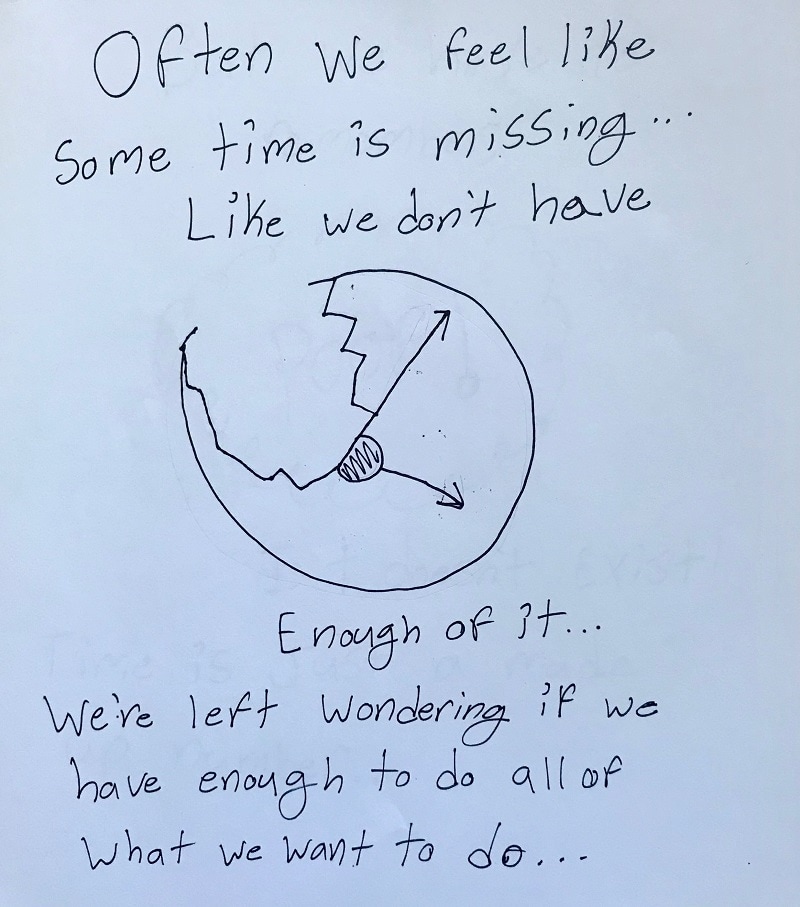 Often We feel like
Some time is missing...
Like we don't have
Enough of it...
We're left wondering if we
have enough to do all of
what we want to do...